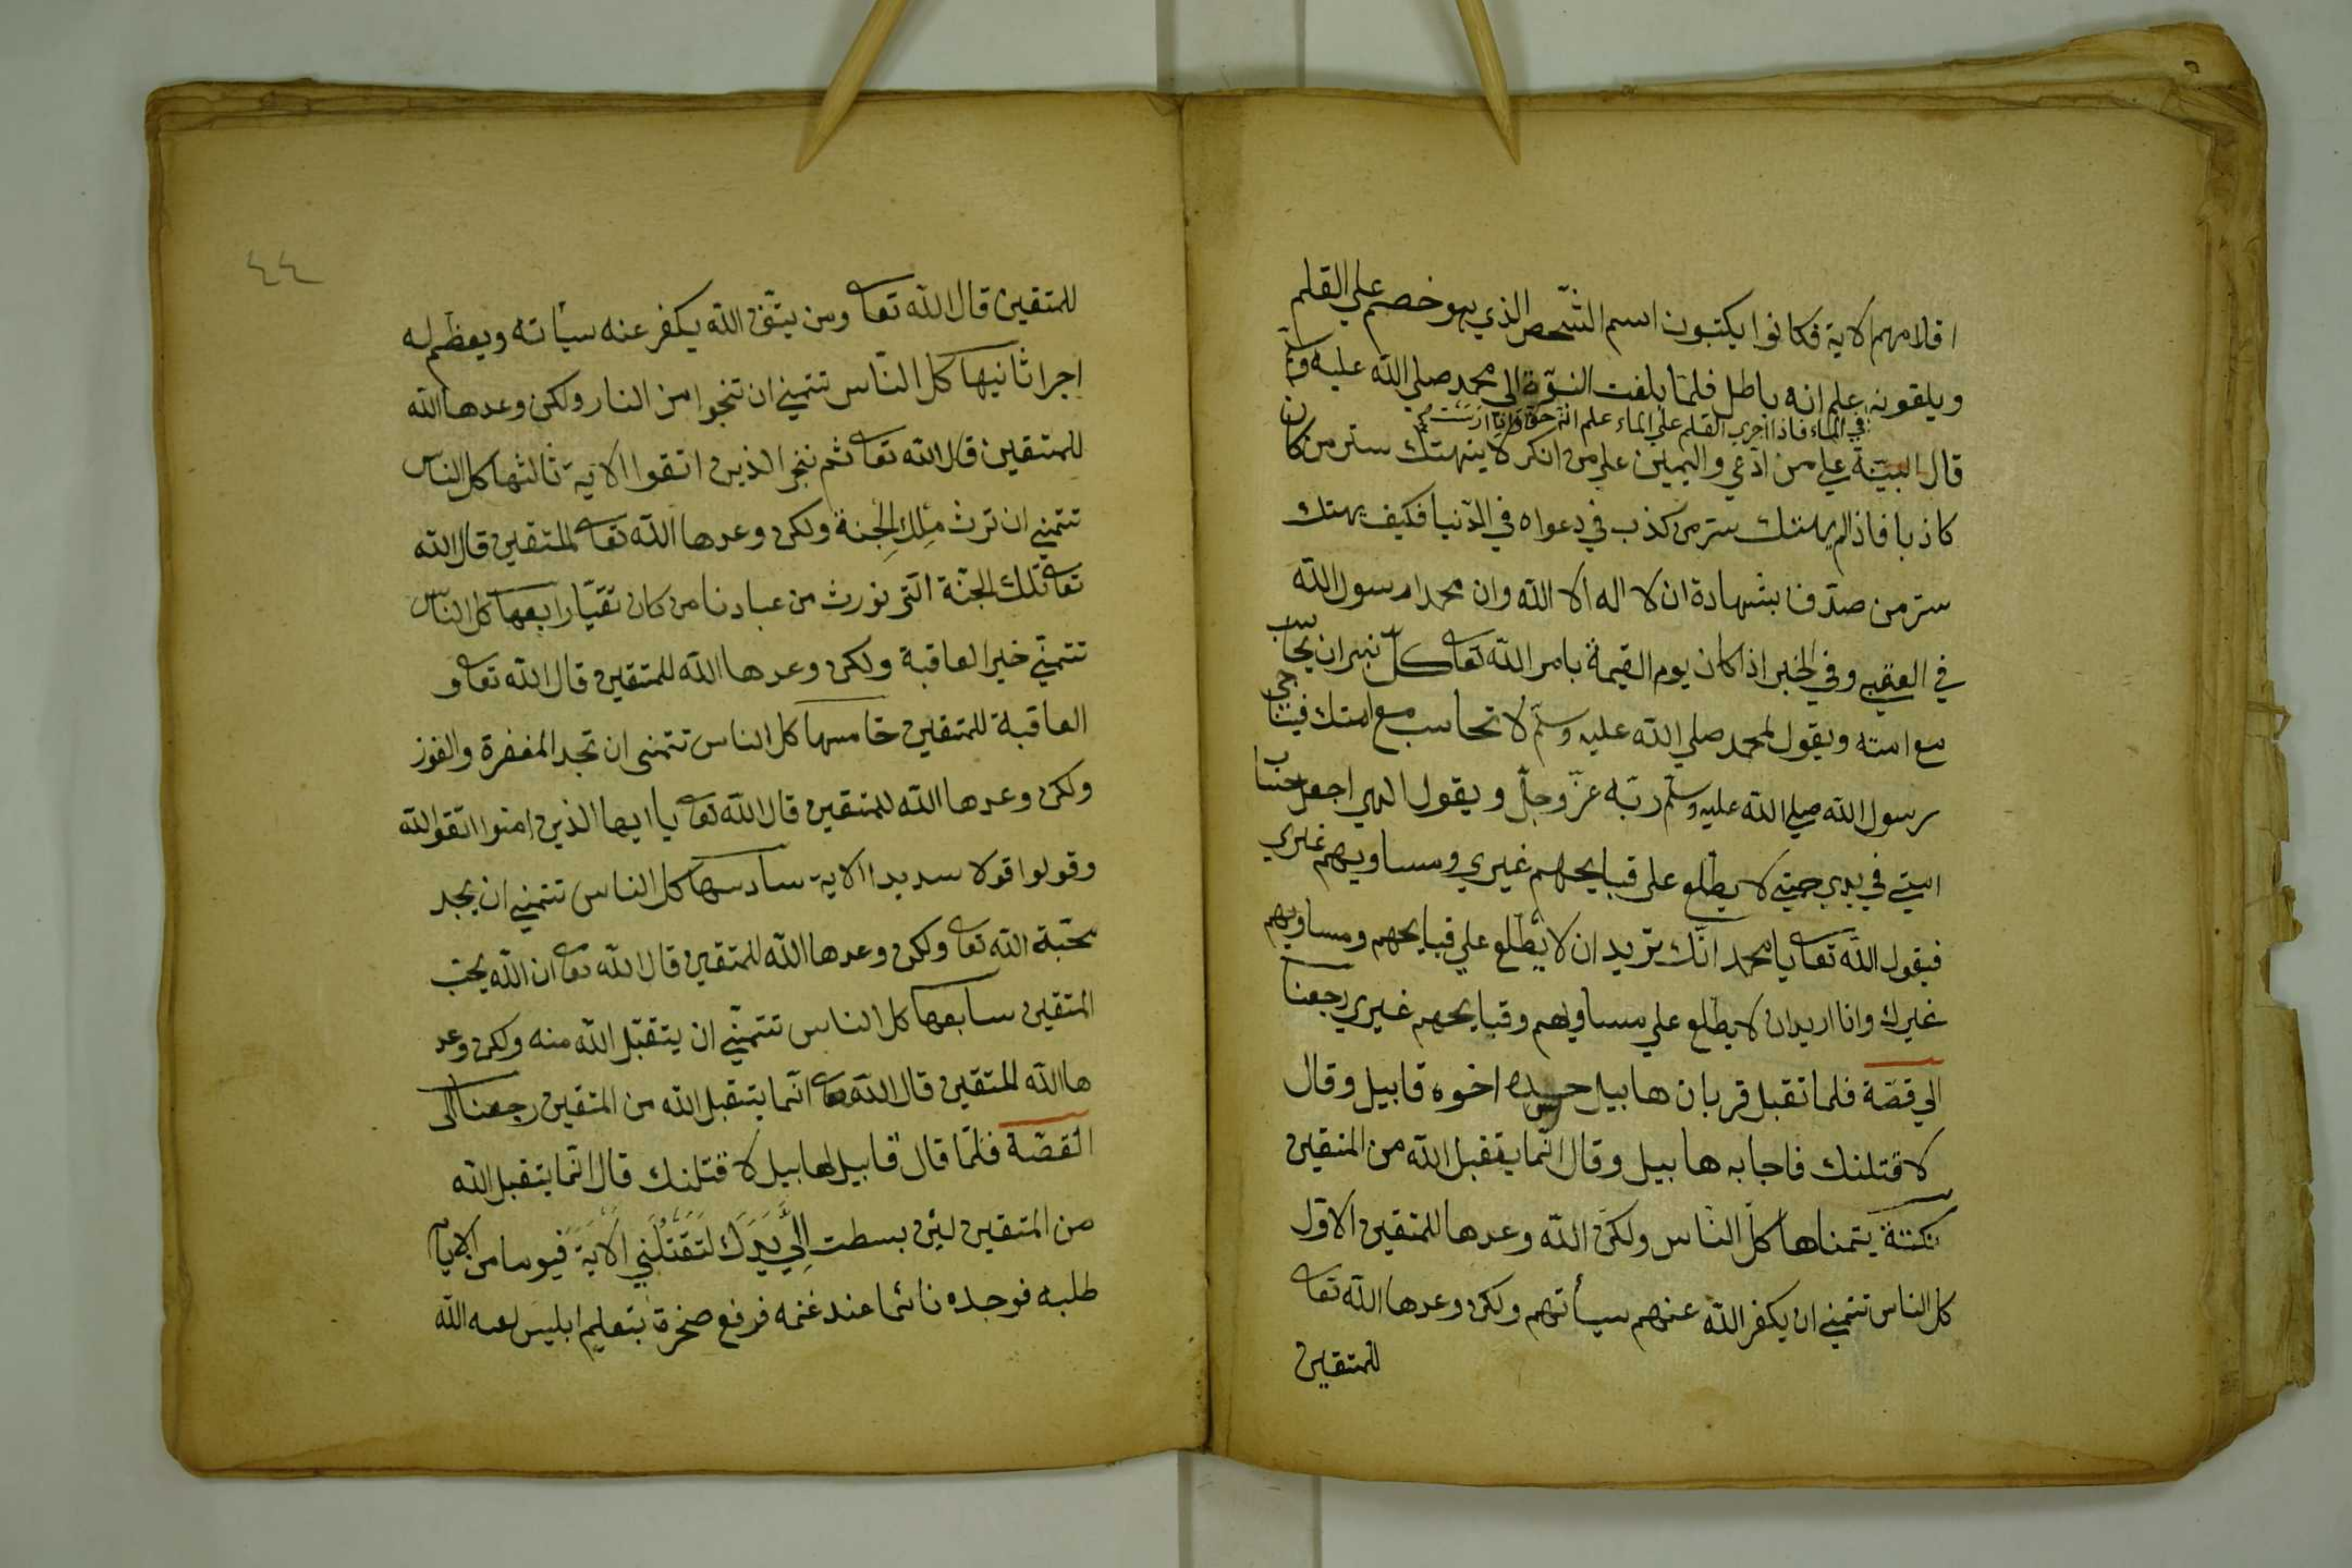 اقلامهم الاية فكانوا يكتبون اسم الشخص الذي هو خصم علي القلم
ويلقونه علم انه باطل فلما بلغت النبوّة الي محمد صلي الله عليه وآله
في الماء فاذا اجري القلم علي الماء علم انه حق
قال البينة علي من ادّعي واليمين علي من انكر لا ينهتك ستر من كان
كاذبا فاذا لم يهتك ستر من كذب في دعواه في الدّنيا فكيف يهتك
ستر من صدّق بشهادة ان لا اله الا الله وان محمدا رسول الله
في العقبي وفي الخبر اذا كان يوم القيمة يامر الله تعا كل نبي ان يحاسب
مع امته ويقول لمحمد صلي الله عليه وسلم لا تحاسب مع امتك فيناجي
رسول الله صلي الله عليه وسلم ربّه عزّ وجلّ ويقول الهي اجعل حساب
امتي في يدي حتي لا يطّلع علي قبايحهم غيري ومساويهم غيري
فيقول الله تعا يا محمد انّك تريد ان لا يطّلع علي قبايحهم ومساويهم
غيرك وانا اريد ان لا يطلع علي مساويهم وقبايحهم غيري رجعنا
الي قصّة فلما تقبل قربان هابيل حسده اخوه قابيل وقال
لاقتلنك فاجابه هابيل وقال انّما يتقبل الله من المتقين
نكتة يتمناها كلّ النّاس ولكنّ الله وعدها للمتقين الاوّل
كل الناس تتمني ان يكفر الله عنهم سيأتهم ولكن وعدها الله تعا
للمتقين
٤٤
للمتقين قال الله تعا ومن يتّق الله يكفر عنه سيأته ويعظم له
اجرا ثانيها كل النّاس تتمني ان تنجوا من النار ولكن وعدها الله
للمتقين قال الله تعا ثم ننجي الذين اتقوا الاية ثالثها كل الناس
تتمني ان ترث ملك الجنة ولكن وعدها الله تعا للمتقين قال الله
تعا تلك الجنّة الّتي نورث من عبادنا من كان تقيّا رابعها كل النّاس
تتمنّي خير العاقبة ولكن وعدها الله للمتقين قال الله تعا و
العاقبة للمتقين خامسها كل الناس تتمنى ان تجد المغفرة والفوز
ولكن وعدها الله للمتقين قال الله تعا يا ايها الذين امنوا اتقوا الله
وقولوا قولا سديدا الاية سادسها كل الناس تتمني ان يجد
محبّة الله تعا ولكن وعدها الله للمتقين قال الله تعا ان الله يحبّ
المتقين سابعها كل الناس تتمنّي ان يتقبّل الله منه ولكن وعد
ها الله للمتقين قال الله تعا انّما يتقبل الله من المتقين رجعنا الى
القصّة فلمّا قال قابيل لهابيل لاقتلنك قال انّما يتقبل الله
من المتقين لئن بسطت اليّ يدك لتقتلني الاية فيوما من الايام
طلبه فوجده نائما عند غنمه فرفع صخرة بتعليم ابليس لعنه الله